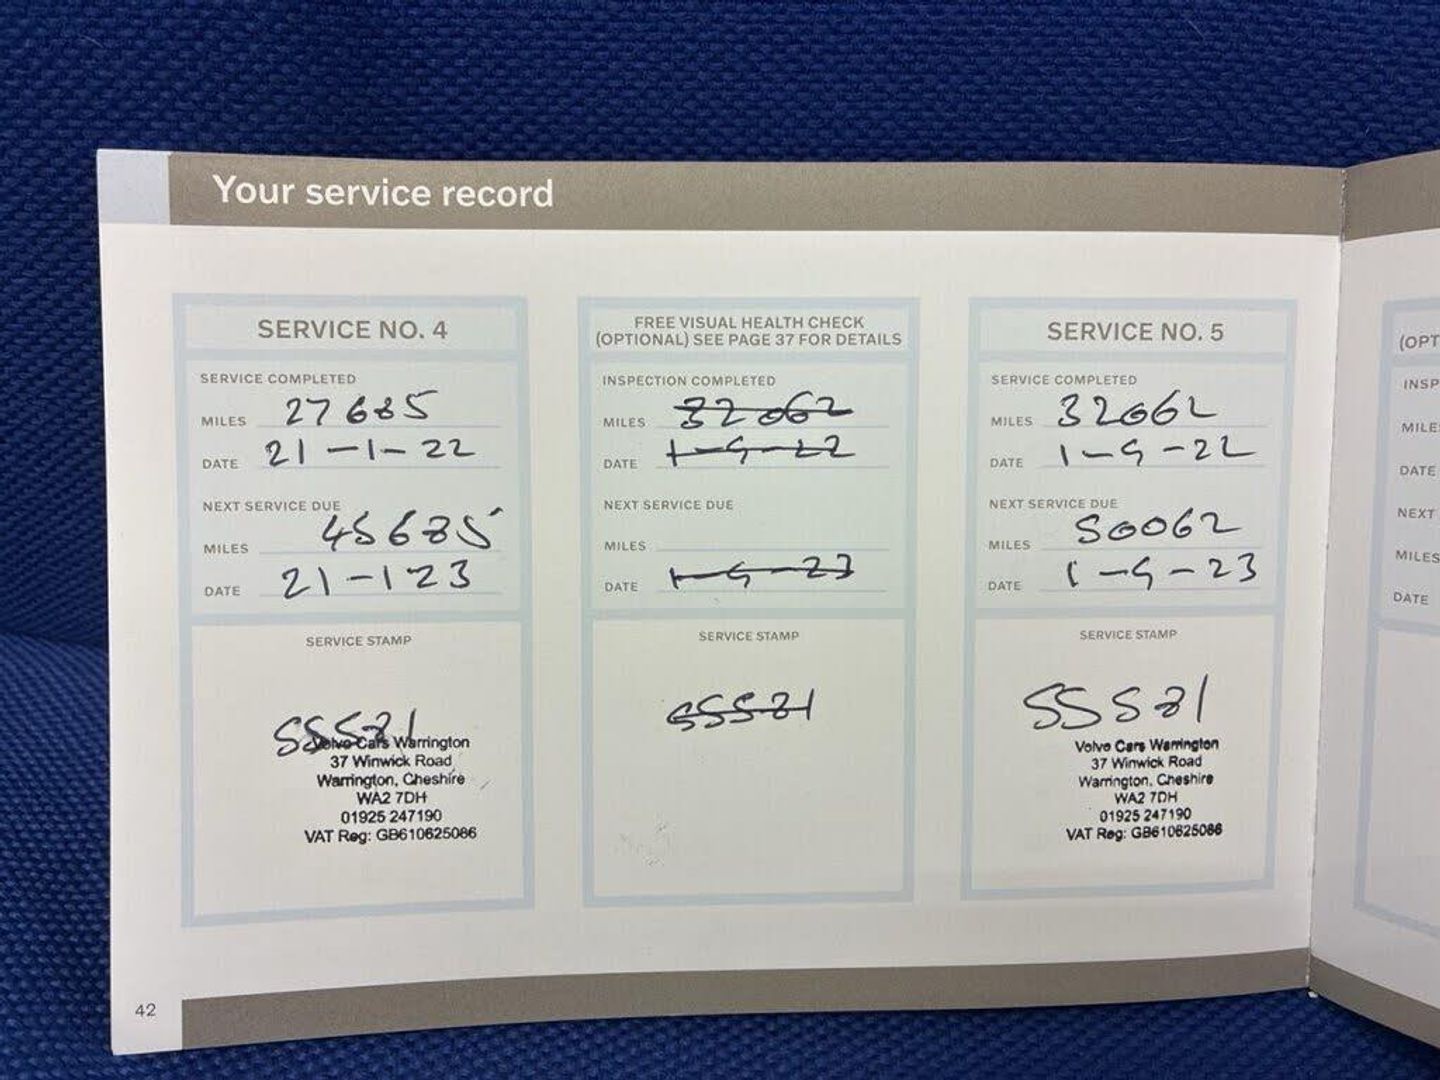 Your service record
SERVICE NO. 4
SERVICE COMPLETED
MILES 27685
DATE 21-1-22
NEXT SERVICE DUE
MILES 45685
DATE 21-123
SERVICE STAMP
SS581
Volvo Cars Warrington
37 Winwick Road
Warrington, Cheshire
WA2 7DH
01925 247190
VAT Reg: GB610625086
FREE VISUAL HEALTH CHECK
(OPTIONAL) SEE PAGE 37 FOR DETAILS
INSPECTION COMPLETED
MILES 32062
DATE 1-9-22
NEXT SERVICE DUE
MILES
DATE 1-9-23
SERVICE STAMP
SS581
SERVICE NO. 5
SERVICE COMPLETED
MILES 32062
DATE 1-9-22
NEXT SERVICE DUE
MILES 50062
DATE 1-9-23
SERVICE STAMP
SS581
Volvo Cars Warrington
37 Winwick Road
Warrington, Cheshire
WA2 7DH
01925 247190
VAT Reg: GB610625086
(OPT
INSP
MILE
DATE
NEXT
MILES
DATE
42